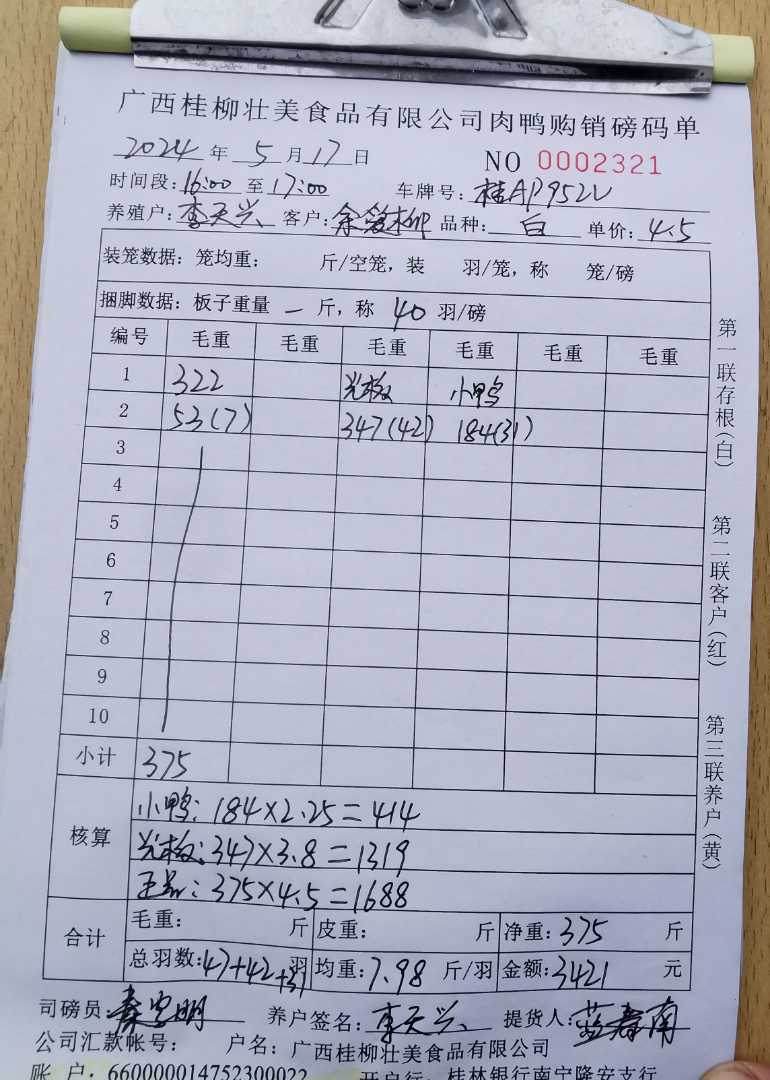 广西桂柳壮美食品有限公司肉鸭购销磅码单
2024 年 5 月 17 日 NO 0002321
时间段:16:00 至 17:00 车牌号:桂AP952V
养殖户:李天兴 客户: 品种: 白 单价: 4.5
装笼数据: 笼均重: 斤/空笼, 装 羽/笼, 称 笼/磅
捆脚数据: 板子重量 一 斤, 称 40 羽/磅
编号 毛重 毛重 毛重 毛重 毛重 毛重
1 322 光板 小鸭
2 53(7) 347(42) 184(31)
3
4
5
6
7
8
9
10
小计 375
核算
小鸭: 184×2.25=414
光板: 347×3.8=1319
正品: 375×4.5=1688
合计
毛重: 斤 皮重: 斤 净重: 375 斤
总羽数:47+42+31 羽 均重:7.98 斤/羽 金额:3421 元
司磅员: 养户签名: 李天兴 提货人: 蓝春南
公司汇款帐号: 户名: 广西桂柳壮美食品有限公司
账 户: 660000014752300022 开户行: 桂林银行南宁隆安支行
第一联存根(白)
第二联客户(红)
第三联养户(黄)